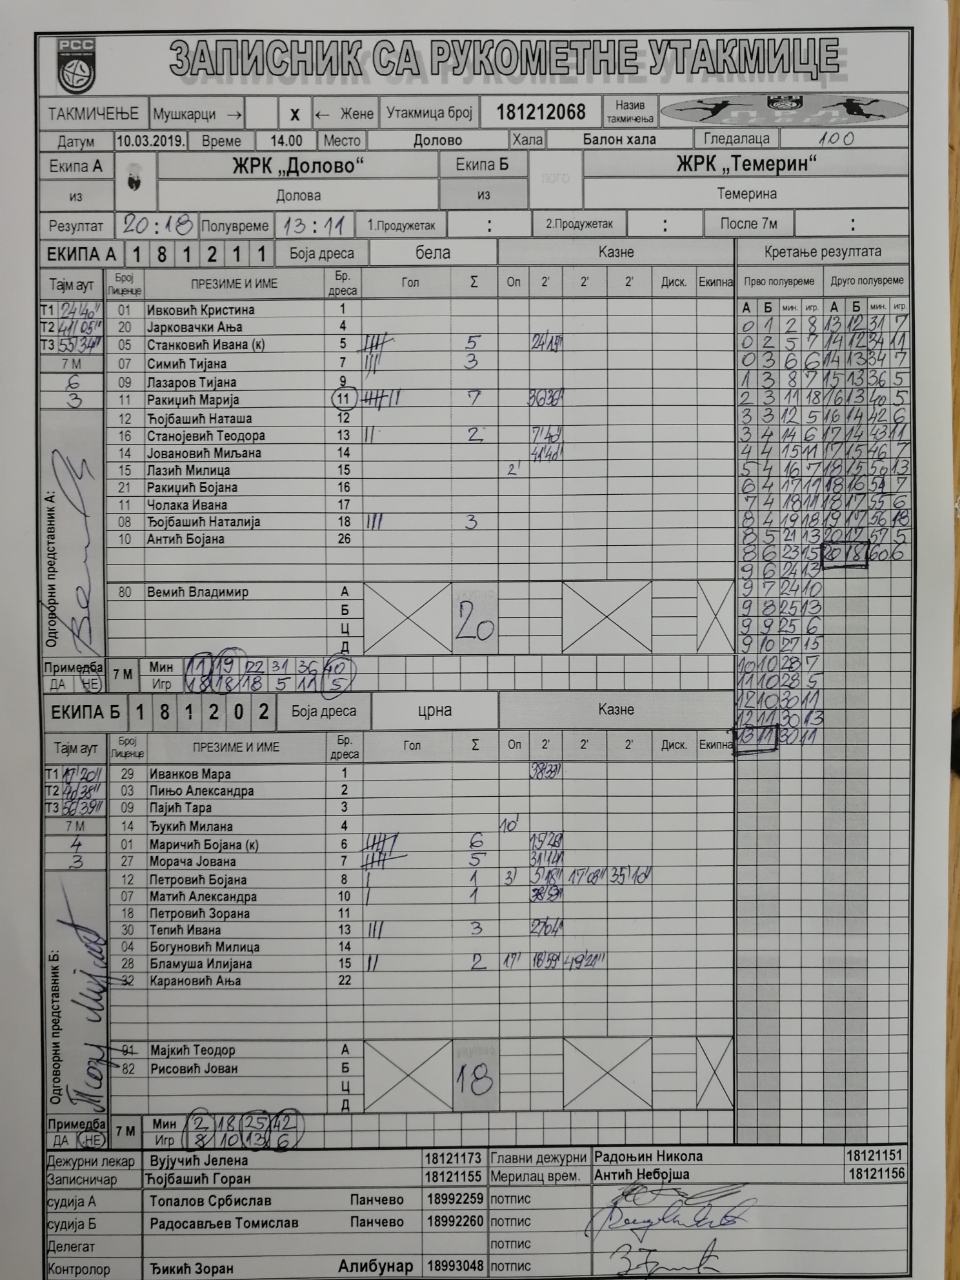 РСС
ЗАПИСНИК СА РУКОМЕТНЕ УТАКМИЦЕ
ТАКМИЧЕЊЕ Мушкарци → X ← Жене Утакмица број 181212068 Назив такмичења
Датум 10.03.2019. Време 14.00 Место Долово Хала Балон хала Гледалаца 100
Екипа А ЖРК „Долово“ Екипа Б ЖРК "Темерин“
из Долова из Темерина
Резултат 20:18 Полувреме 13:11 1.Продужетак : 2.Продужетак : После 7м :
ЕКИПА А 1 8 1 2 1 1 Боја дреса бела Казне Кретање резултата
Тајм аут Број Лиценце ПРЕЗИМЕ И ИМЕ Бр. дреса Гол Σ Оп 2' 2' 2' Диск. Екипна Прво полувреме Друго полувреме
А Б мин. игр. А Б мин. игр.
Т1 24'40" 01 Ивковић Кристина 1
Т2 41'05" 20 Јарковачки Ања 4
Т3 55'34" 05 Станковић Ивана (к) 5 5 24'19"
7 М 07 Симић Тијана 7 3
6 09 Лазаров Тијана 9
3 11 Ракиџић Марија 11 7 36'36"
12 Ћојбашић Наташа 12
16 Станојевић Теодора 13 2 7'40"
14 Јовановић Миљана 14 41'40"
15 Лазић Милица 15 2'
21 Ракиџић Бојана 16
11 Чолака Ивана 17
08 Ђојбашић Наталија 18 3
10 Антић Бојана 26
0 1 2 8 13 12 31 7
0 2 5 7 14 12 34 11
0 3 6 6 14 13 34 7
1 3 8 7 15 13 36 5
2 3 11 18 16 13 40 5
3 3 12 5 16 14 42 6
3 4 14 6 17 14 43 11
4 4 15 11 17 15 46 7
5 4 16 7 18 15 50 13
6 4 17 17 18 16 51 7
7 4 18 11 18 17 55 6
8 4 19 18 19 17 56 18
8 5 21 13 20 17 57 5
8 6 23 15 20 18 60 6
9 6 24 13
9 7 24 10
9 8 25 13
9 9 25 6
9 10 27 15
10 10 28 7
11 10 28 5
12 10 30 11
12 11 30 13
13 11 30 11
Одговорни представник А:
80 Вемић Владимир А
Б
Ц
Д
20
Примедба 7 М Мин 11 19 22 31 36 40
ДА НЕ Игр 18 18 18 5 11 5
ЕКИПА Б 1 8 1 2 0 2 Боја дреса црна Казне
Тајм аут Број Лиценце ПРЕЗИМЕ И ИМЕ Бр. дреса Гол Σ Оп 2' 2' 2' Диск. Екипна
Т1 17'20" 29 Иванков Мара 1 38'33"
Т2 40'38" 03 Пињо Александра 2
Т3 56'39" 09 Пајић Тара 3
7 М 14 Ђукић Милана 4 10'
4 01 Маричић Бојана (к) 6 6 15'28"
3 27 Морача Јована 7 5 31'14"
12 Петровић Бојана 8 1 3' 5'18" 17'03" 35'10"
07 Матић Александра 10 1 38'53"
18 Петровић Зорана 11
30 Тепић Ивана 13 3 27'04"
04 Богуновић Милица 14
28 Бламуша Илијана 15 2 17' 18'59" 49'21"
32 Карановић Ања 22
Одговорни представник Б:
91 Мајкић Теодор А
82 Рисовић Јован Б
Ц
Д
18
Примедба 7 М Мин 2 18 25 42
ДА НЕ Игр 8 10 13 6
Дежурни лекар Вујучић Јелена 18121173 Главни дежурни Радоњин Никола 18121151
Записничар Ћојбашић Горан 18121155 Мерилац врем. Антић Небојша 18121156
судија А Топалов Србислав Панчево 18992259 потпис
судија Б Радосављев Томислав Панчево 18992260 потпис
Делегат потпис
Контролор Ђикић Зоран Алибунар 18993048 потпис